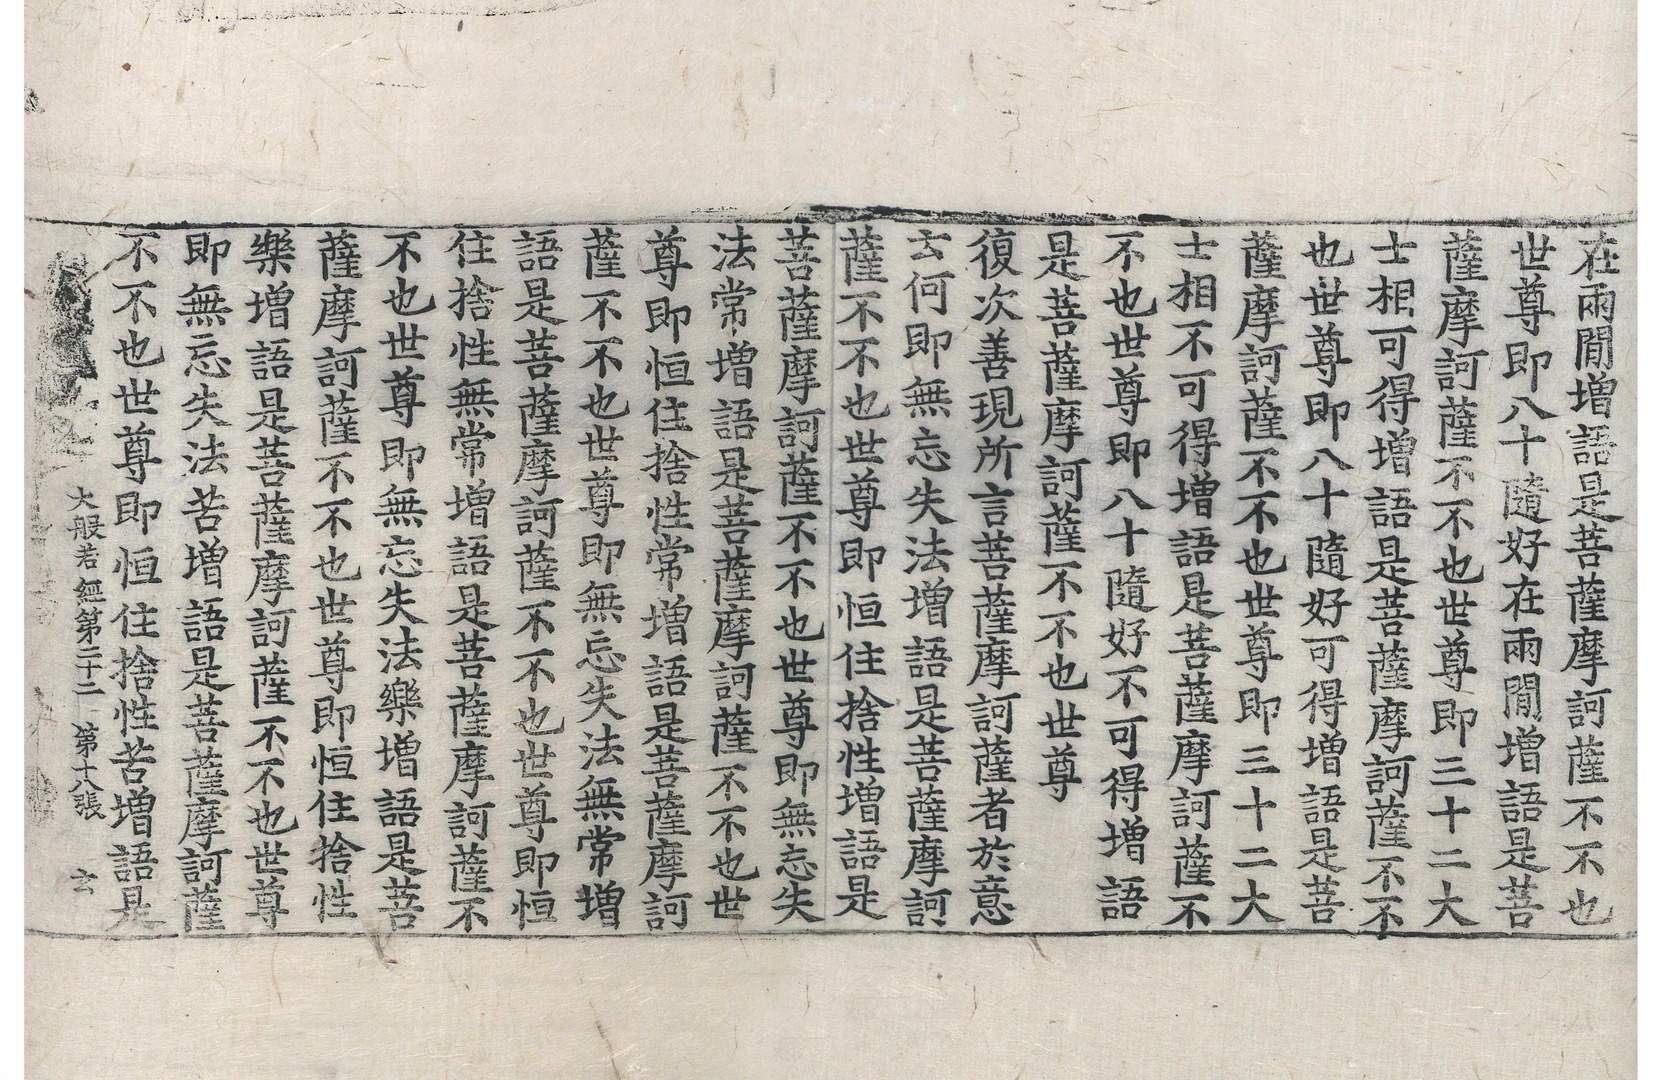 在兩閒增語是菩薩摩訶薩不不也
世尊即八十隨好在兩閒增語是菩
薩摩訶薩不不也世尊即三十二大
士相可得增語是菩薩摩訶薩不不
也世尊即八十隨好可得增語是菩
薩摩訶薩不不也世尊即三十二大
士相不可得增語是菩薩摩訶薩不
不也世尊即八十隨好不可得增語
是菩薩摩訶薩不不也世尊
復次善現所言菩薩摩訶薩者於意
云何即無忘失法增語是菩薩摩訶
薩不不也世尊即恒住捨性增語是
菩薩摩訶薩不不也世尊即無忘失
法常增語是菩薩摩訶薩不不也世
尊即恒住捨性常增語是菩薩摩訶
薩不不也世尊即無忘失法無常增
語是菩薩摩訶薩不不也世尊即恒
住捨性無常增語是菩薩摩訶薩不
不也世尊即無忘失法樂增語是菩
薩摩訶薩不不也世尊即恒住捨性
樂增語是菩薩摩訶薩不不也世尊
即無忘失法苦增語是菩薩摩訶薩
不不也世尊即恒住捨性苦增語是
大般若經第二十二 第十八張 玄